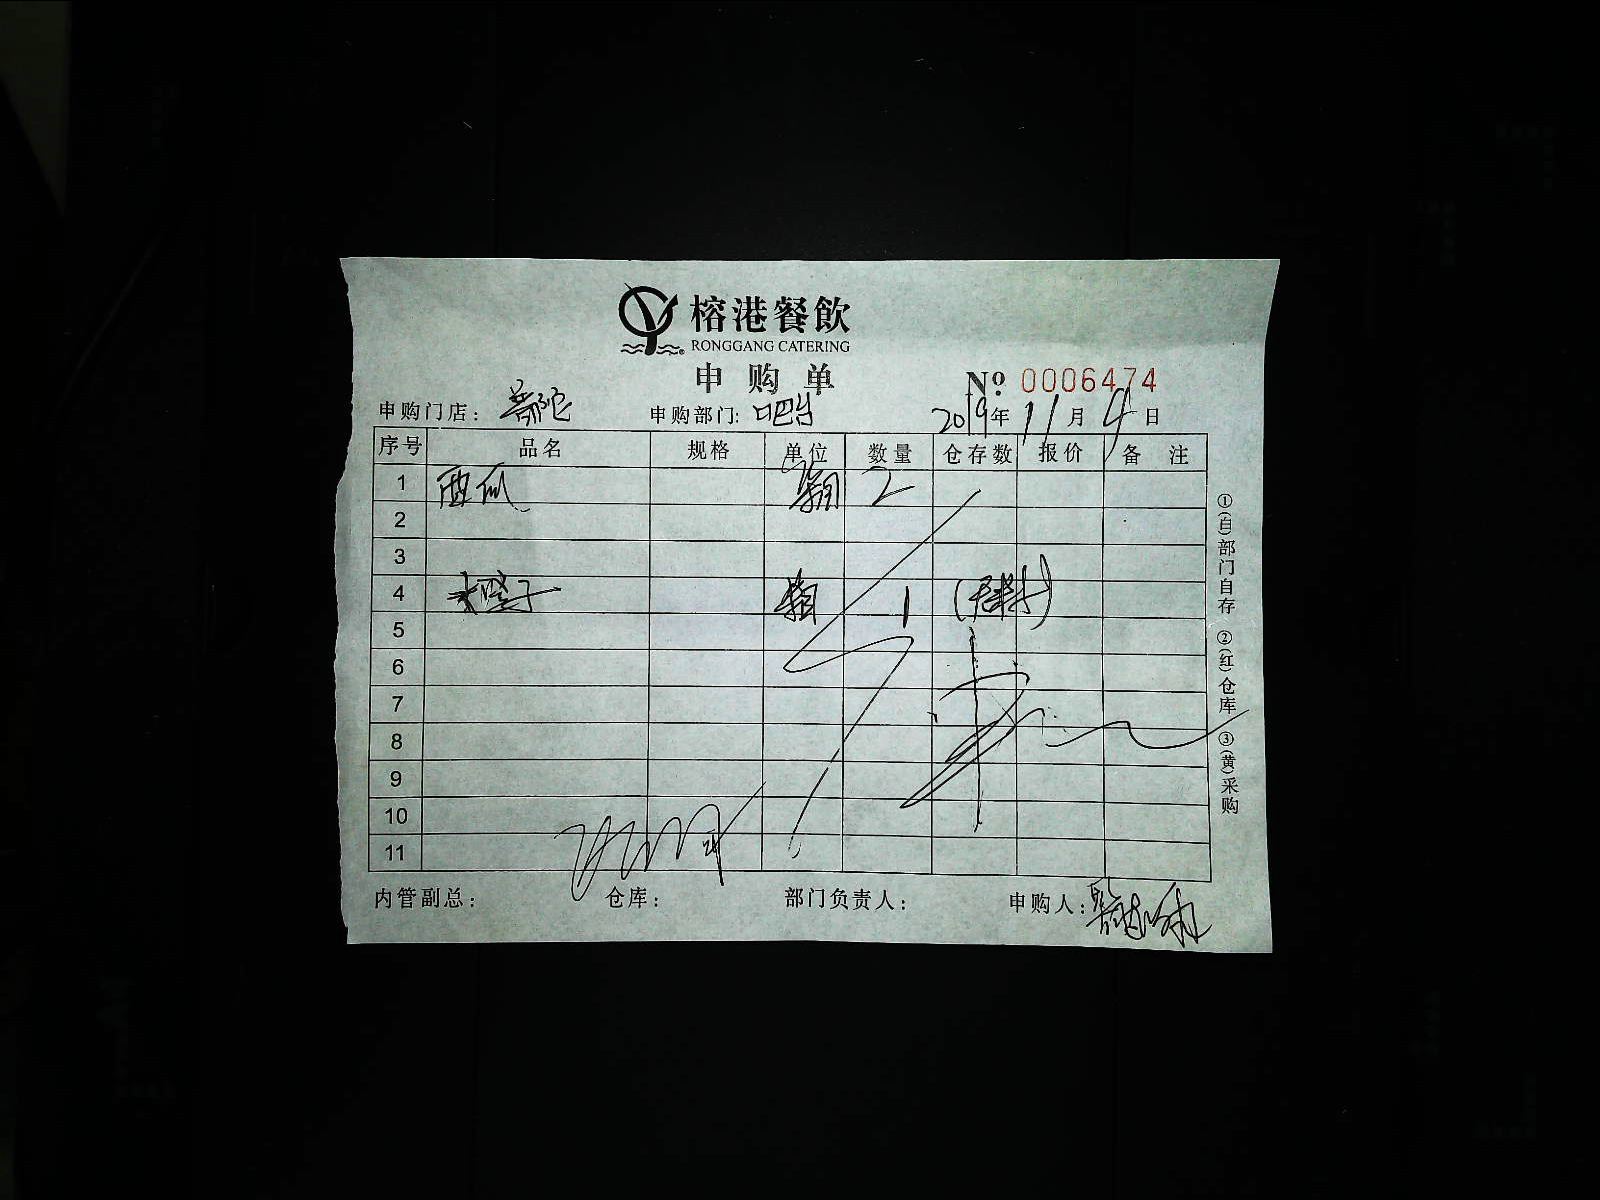 榕港餐飲
RONGGANG CATERING
申购单
№ 0006474
申购门店：普陀 申购部门: 吧台 2019年11月9日
序号 品名 规格 单位 数量 仓存数 报价 备注
1 西瓜 箱 2
2
3
4 箱 1
5
6
7
8
9
10
11
内管副总： 仓库： 部门负责人： 申购人：
①(白)部门自存 ②(红)仓库 ③(黄)采购